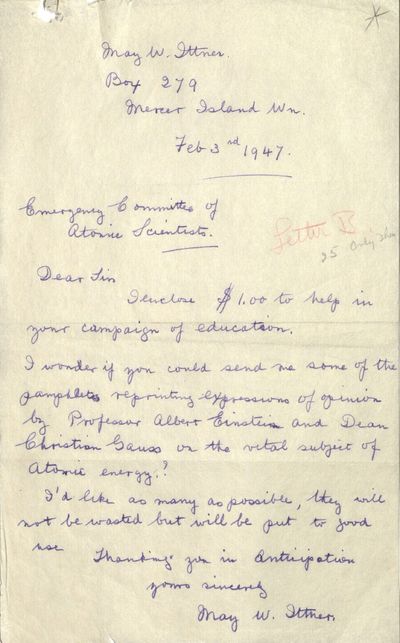 May W. Ittner.
Box 279
Mercer Island Wn.
Feb 3rd 1947.
Emergency Committee of
Atomic Scientists.
Letter B
25 Only
Dear Sir
I enclose $1.00 to help in
your campaign of education.
I wonder if you could send me some of the
pamphlets reprinting expressions of opinion
by Professor Albert Einstein and Dean
Christian Gauss on the vital subject of
Atomic energy.?
I'd like as many as possible, they will
not be wasted but will be put to good
use
Thanking you in Anticipation
yours sincerely
May W. Ittner.